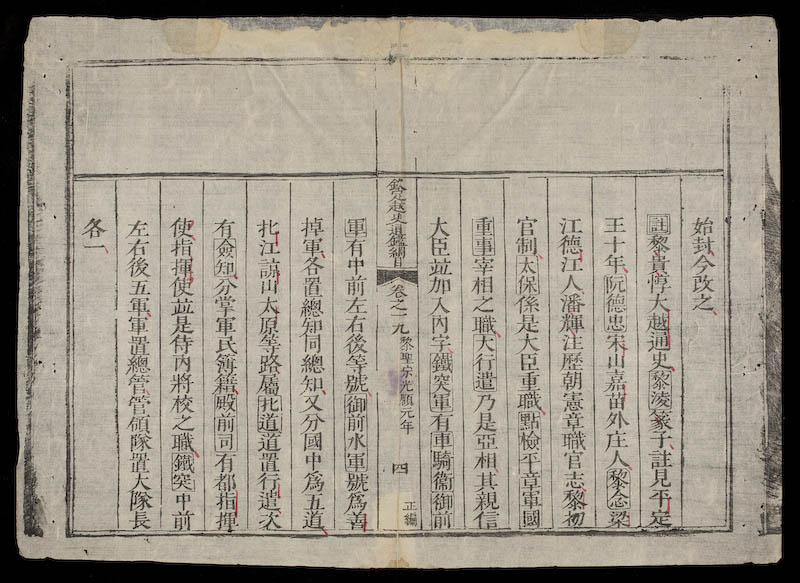 始封今改之
註黎貴惇大越通史黎淩篆子註見平定
王十年阮德忠宋山嘉苗外庄人黎念梁
江德江人潘輝注歷朝憲章職官志黎初
官制太保係是大臣重職點檢平章軍國
重事宰相之職大行遣乃是亞相其親信
大臣並加入內字鐵突軍有車騎衛御前
欽定越史通鑑綱目 卷之十九 黎聖宗光順元年 四 正編
軍有中前左右後等號御前水軍號爲善
掉軍各置總知同總知又分國中爲五道
北江諒山太原等路屬北道道置行遣次
有僉知分掌軍民簿籍殿前司有都指揮
使指揮使並是侍內將校之職鐵突中前
左右後五軍軍置總管管領隊置大隊長
各一